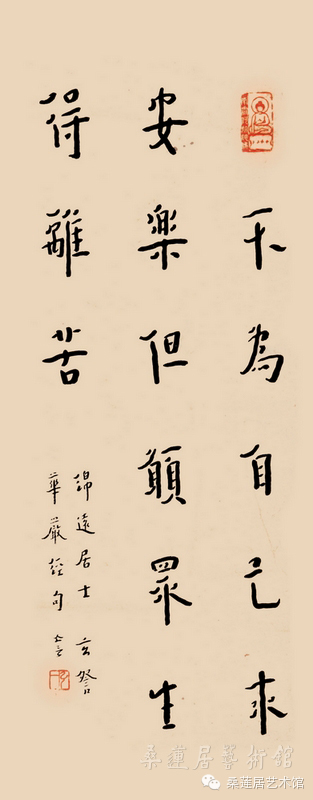 不為自己求
安樂但願眾生
得離苦
遠居士 玄詧
華嚴經句
桑蓮居藝術館
桑莲居艺术馆